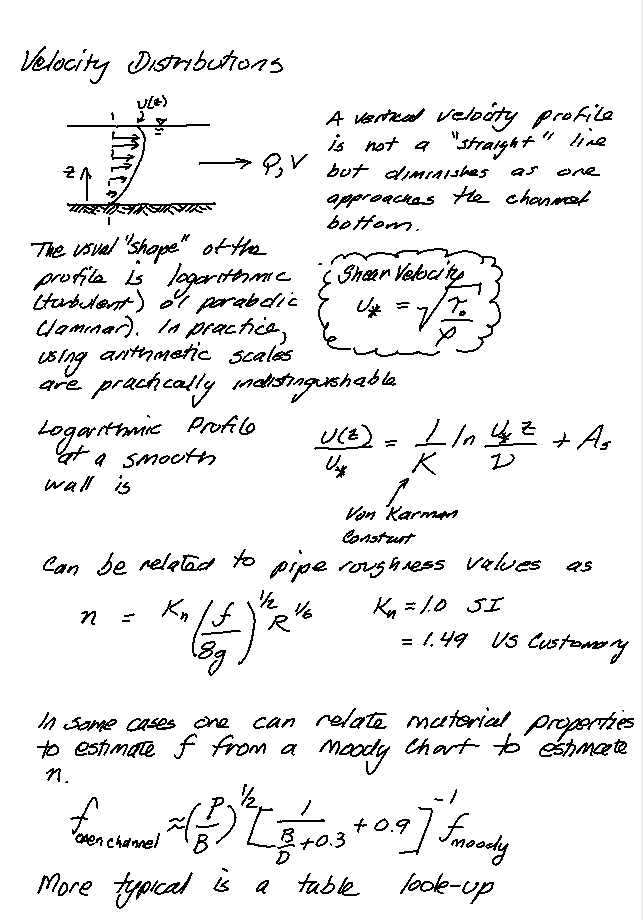 Velocity Distributions
U(z)
z
Q, V
A vertical velocity profile
is not a "straight" line
but diminishes as one
approaches the channel
bottom.
The usual "shape" of the
profile is logarithmic
(turbulent) or parabolic
(laminar). In practice,
using arithmetic scales
are practically indistinguishable
Shear Velocity
U* = √(τ₀/ρ)
Logarithmic Profile
at a smooth
wall is
U(z)/U* = 1/K ln U* z/ν + As
Von Karman
Constant
Can be related to pipe roughness values as
n = Kn (f/8g)^1/2 R^1/6
Kn = 1.0 SI
= 1.49 US Customary
In some cases one can relate material properties
to estimate f from a Moody Chart to estimate
n.
f open channel ≈ (P/B)^1/2 [1/(B/D + 0.3) + 0.9]^-1 f moody
More typical is a table look-up